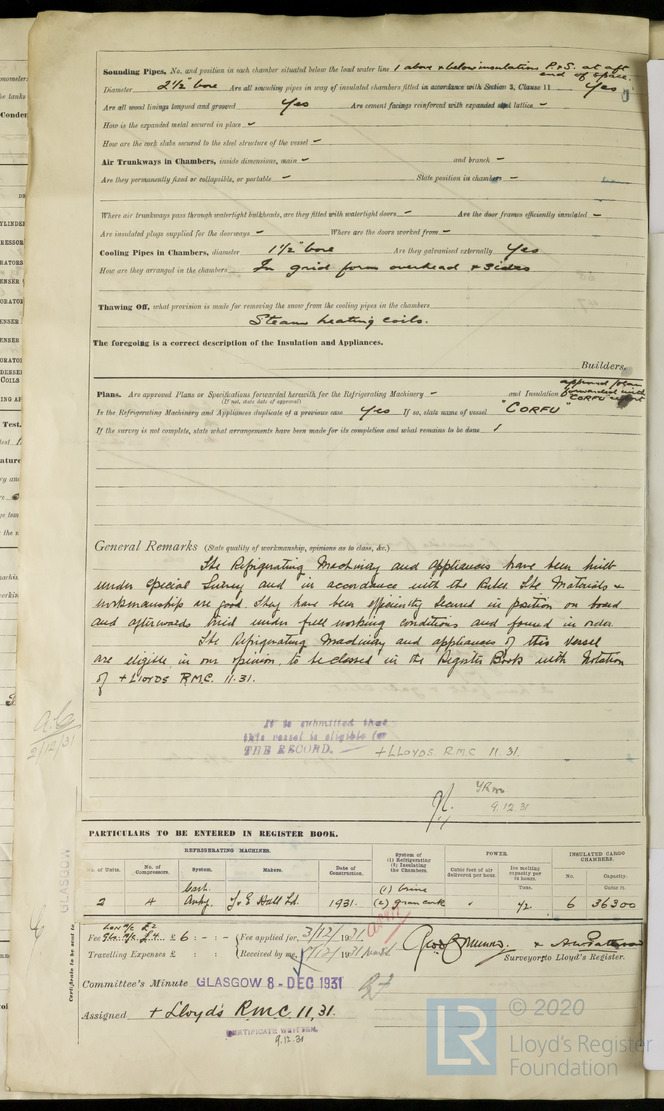 Sounding Pipes, No. and position in each chamber situated below the load water line 1 above & below insulation P. & S. at aft end of space.
Diameter 2½" bore Are all sounding pipes in way of insulated chambers fitted in accordance with Section 3, Clause 11 Yes
Are all wood linings tongued and grooved Yes Are cement facings reinforced with expanded steel lattice -
How is the expanded metal secured in place -
How are the cork slabs secured to the steel structure of the vessel -
Air Trunkways in Chambers, inside dimensions, main - and branch -
Are they permanently fixed or collapsible, or portable - State position in chambers -
Where air trunkways pass through watertight bulkheads, are they fitted with watertight doors - Are the door frames efficiently insulated -
Are insulated plugs supplied for the doorways - Where are the doors worked from -
Cooling Pipes in Chambers, diameter 1½" bore Are they galvanised externally Yes
How are they arranged in the chambers In grid form overhead & sides
Thawing Off, what provision is made for removing the snow from the cooling pipes in the chambers
Steam heating coils.
The foregoing is a correct description of the Insulation and Appliances.
Builders.
Plans. Are approved Plans or Specifications forwarded herewith for the Refrigerating Machinery - and Insulation approved plan forwarded with "CORFU" report
(If not, state date of approval)
Is the Refrigerating Machinery and Appliances duplicate of a previous case Yes If so, state name of vessel "CORFU"
If the survey is not complete, state what arrangements have been made for its completion and what remains to be done
General Remarks (State quality of workmanship, opinions as to class, &c.)
The Refrigerating Machinery and appliances have been built
under Special Survey and in accordance with the Rules. The Materials &
workmanship are good. They have been efficiently secured in position on board
and afterwards tried under full working conditions and found in order.
The Refrigerating Machinery and appliances of this vessel
are eligible, in our opinion, to be classed in the Register Book with Notation
of + LLOYDS R.M.C. 11.31.
2/12/31
It is submitted that
this vessel is eligible for
THE RECORD. + LLOYDS RMC 11.31.
9.12.31
PARTICULARS TO BE ENTERED IN REGISTER BOOK.
REFRIGERATING MACHINES. POWER. INSULATED CARGO CHAMBERS.
No. of Units. No. of Compressors. System. Makers. Date of Construction. System of (1) Refrigerating (2) Insulating the Chambers. Cubic feet of air delivered per hour. Ice melting capacity per 24 hours. No. Capacity.
Tons. Cubic ft.
2 4 Carb. Anhy. J & E Hall Ld. 1931. (1) brine (2) gran cork ½ 6 36300
GLASGOW
Certificate to be sent to
Fee £ 6 : - : - Fee applied for, 3/12/1931
Travelling Expenses £ : : Received by me,
Surveyors to Lloyd's Register.
Committee's Minute GLASGOW 8 - DEC 1931
Assigned + Lloyd's R.M.C. 11,31.
CERTIFICATE WRITTEN.
9.12.31
LR © 2020
Lloyd's Register
Foundation